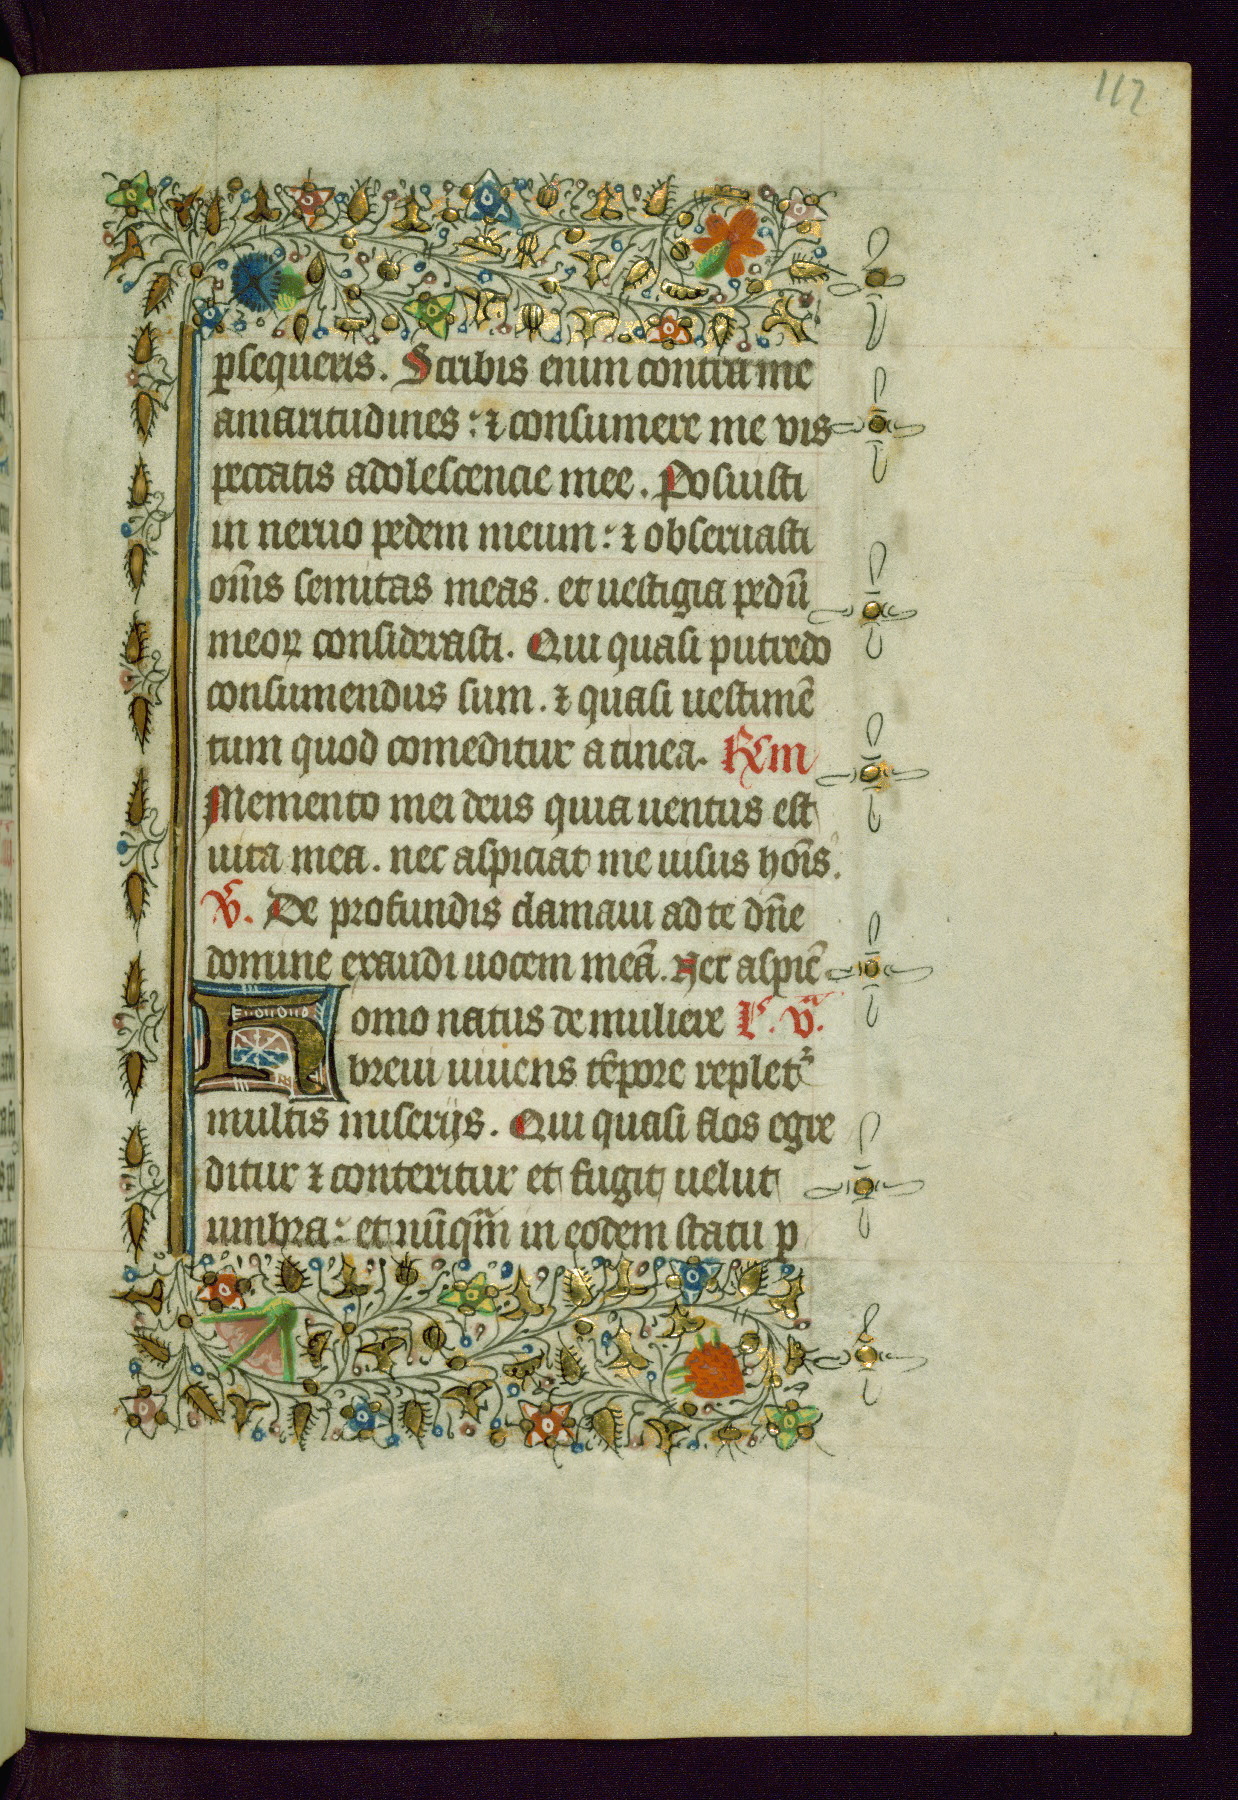 117
ꝑsequeris. Scribis enim contra me
amaritudines: ⁊ consumere me vis
peccatis adolescencie mee. Posuisti
in neruo pedem meum: ⁊ obseruasti
om̄s semitas meas. et uestigia pedū
meoꝝ considerasti. Qui quasi putredo
consumendus sum. ⁊ quasi uestimē
tum quod comeditur a tinea. Rm̄
Memento mei deus quia uentus est
uita mea. nec aspiciat me uisus hoīs.
V̄. De profundis clamaui ad te dn̄e
domine exaudi uocem meā. Nec aspic̄
Homo natus de muliere L. vͣ.
breui uiuens tēpore replet᷑
multis miserijs. Qui quasi flos egre
ditur ⁊ conteritur et fugit uelut
umbra: et nūqͣm in eodem statu p